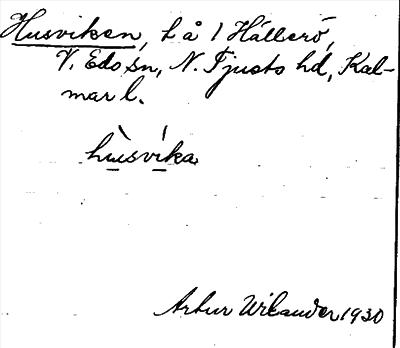 Husviken, t å 1 Hállerö,
V. Edo sn, N. Tjusts hd, Kal-
mar l.
hùsvíka
Artur Wilander 1930